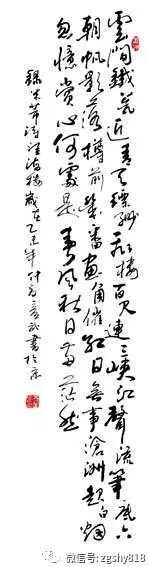 雲間鐵瓮近青天縹緲飛樓百尺連三峽江聲流筆底六
朝帆影落樽前幾番畫角催紅日無事滄洲起白烟
忽憶賞心何處是春風秋月兩茫然
錄米芾詩望海樓歲在乙未年 書於京
微信号: zgshy818